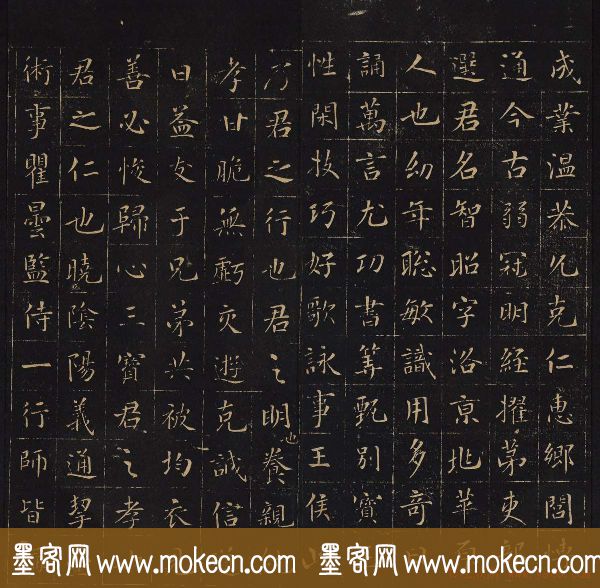 成業溫恭允克仁惠鄉閭
通今古弱冠明經擢第吏部
選君名智昭字洛京兆華原
人也幼年聡敏識用多奇日
誦萬言尤功書筭甄別寶
性閑技巧好歌詠事王侯
乃君之行也君之明也養親
孝甘脆無虧交遊克誠信
日益友于兄弟共被均衣
善必悛歸心三寶君之孝
君之仁也曉陰陽義通挈
術事瞿曇監侍一行師皆
墨客网 www.mokecn.com 墨客网 www.mokecn.com